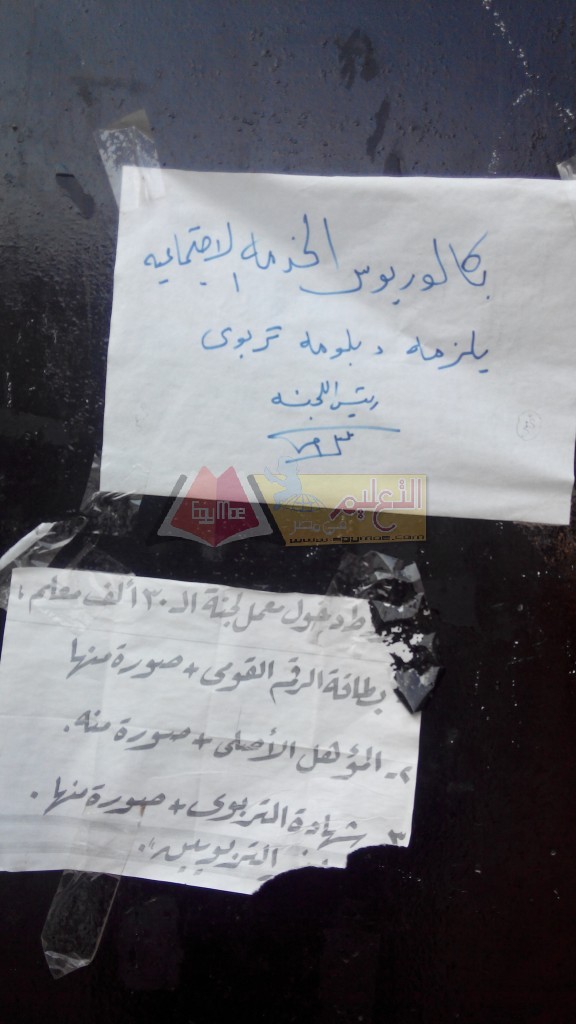 بكالوريوس الخدمه الاجتماعيه
يلزمه دبلومه تربوى
رئيس اللجنه
EgyMoe
التعليم
في مصر
www.egymoe.com
دخول معمل لجنة الـ ٣٠ ألف معلم :
بطاقة الرقم القومى + صورة منها
٢- المؤهل الأصلى + صورة منه .
٣ شهادة التربوى + صورة منها .
التربويين .